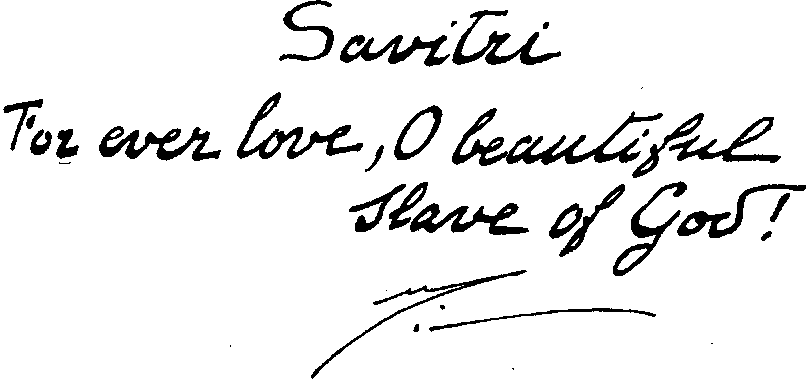 Savitri
For ever love, O beautiful
slave of God!